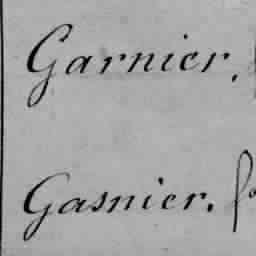 Garnier,
Gasnier.